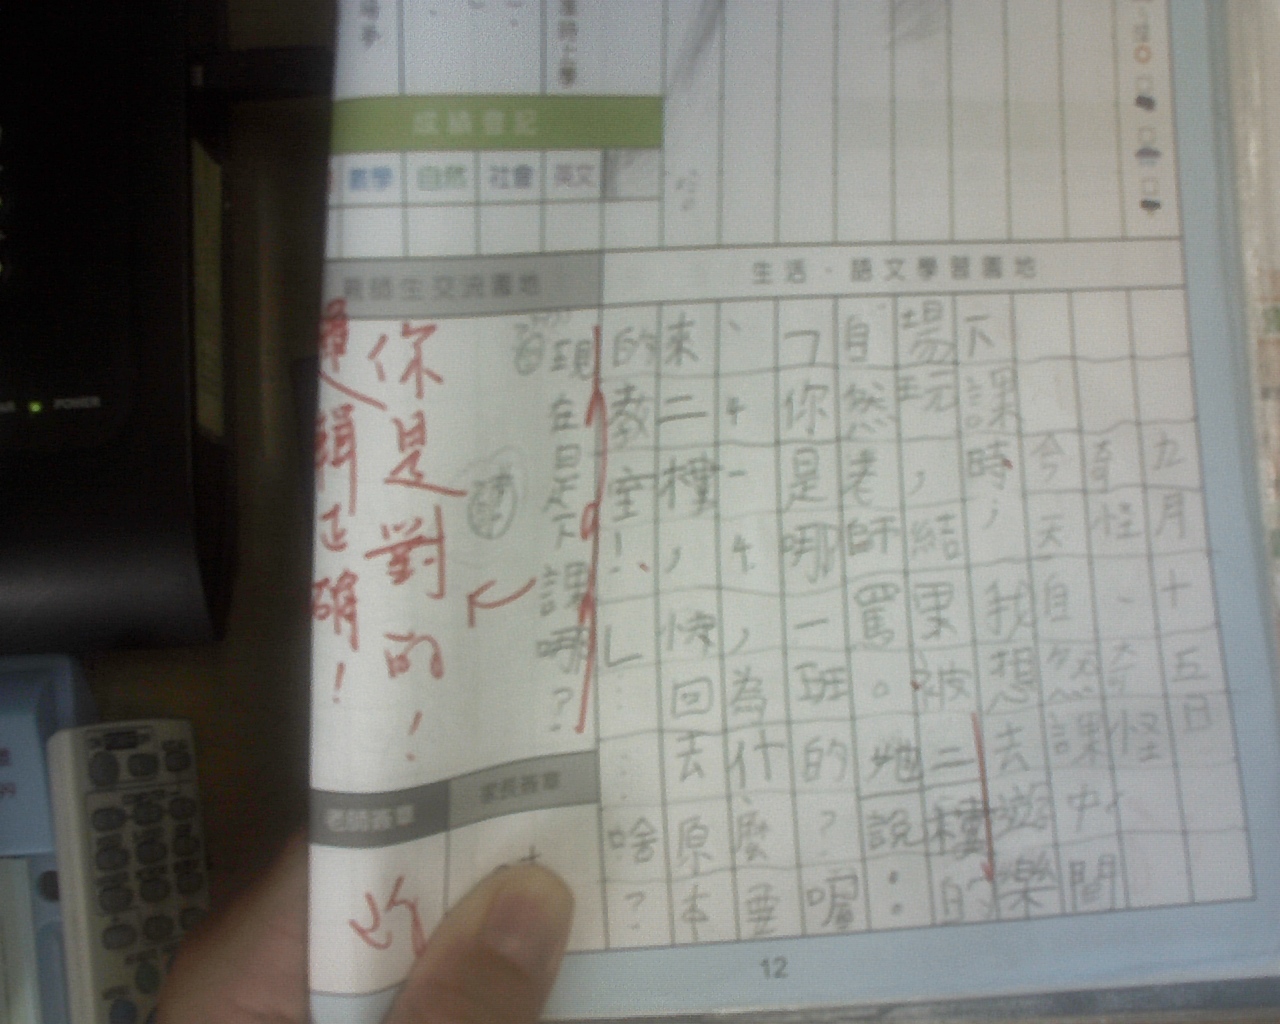 成績登記
數學
自然
社會
英文
親師生交流園地
生活．語文學習園地
九月十五日
奇怪、奇怪
今天自然課中間
下課時，我想去遊樂
場玩，結果被二樓的
自然老師罵。她說：
「你是哪一班的？喔
、4-4，為什麼要
來二樓，快回去原本
的教室！」……啥？
現在是下課哪？
你是對的！
邏輯正確！
老師簽章
家長簽章
12
POWER